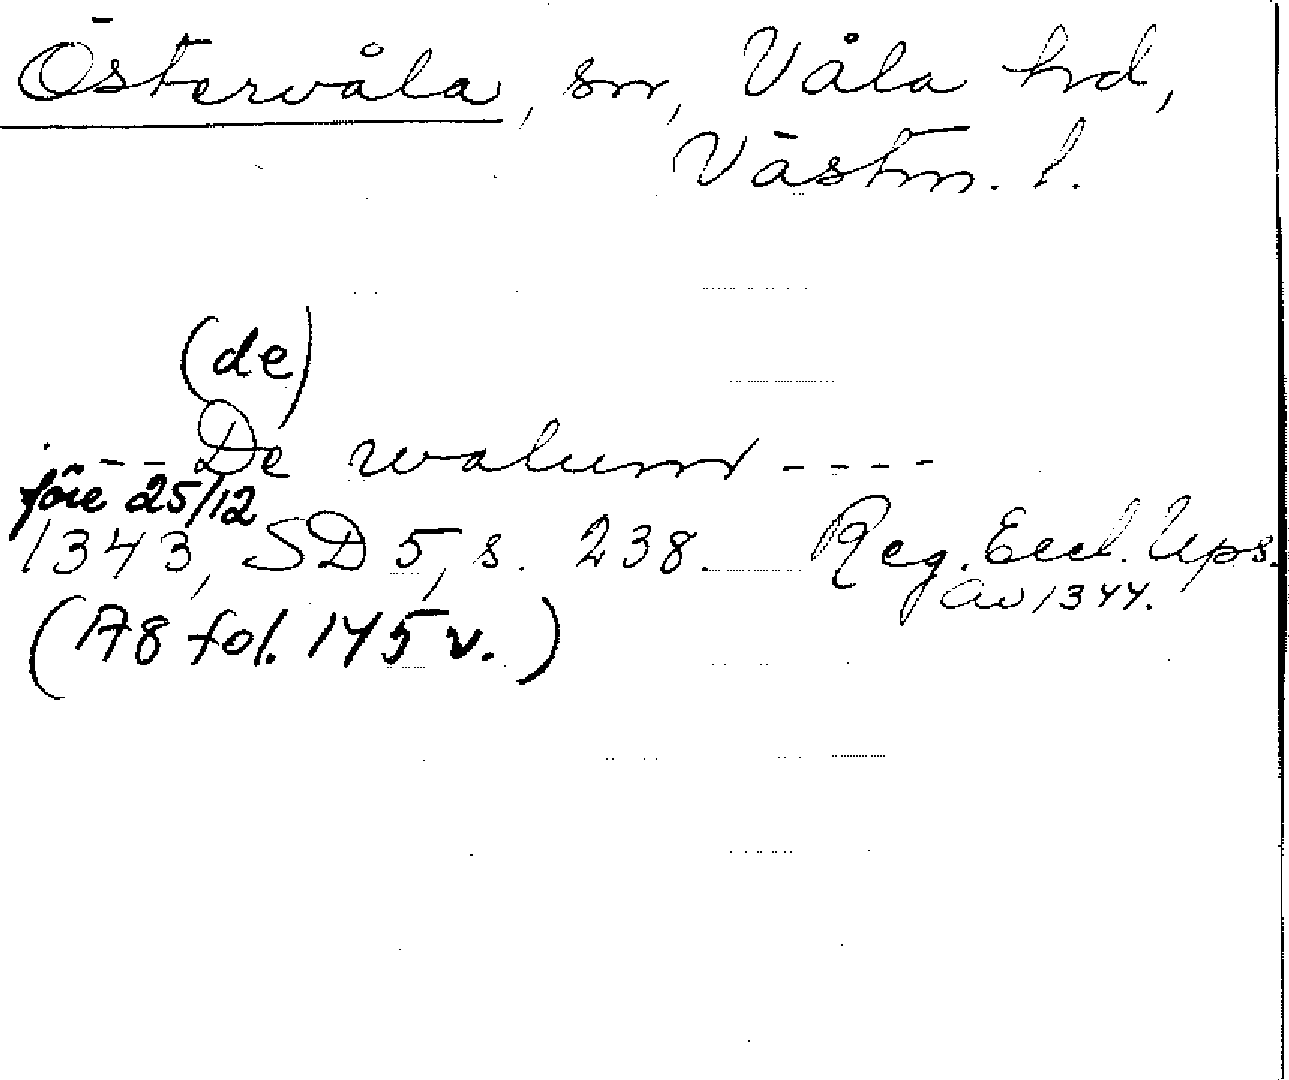 Östervåla, sn, Våla hd,
Västm. l.
(de)
- - De walum - - - -
före 25/12
1343, SD 5, s. 238. Reg. Eccl. Ups.
av 1344.
(A8 fol. 145 v.)